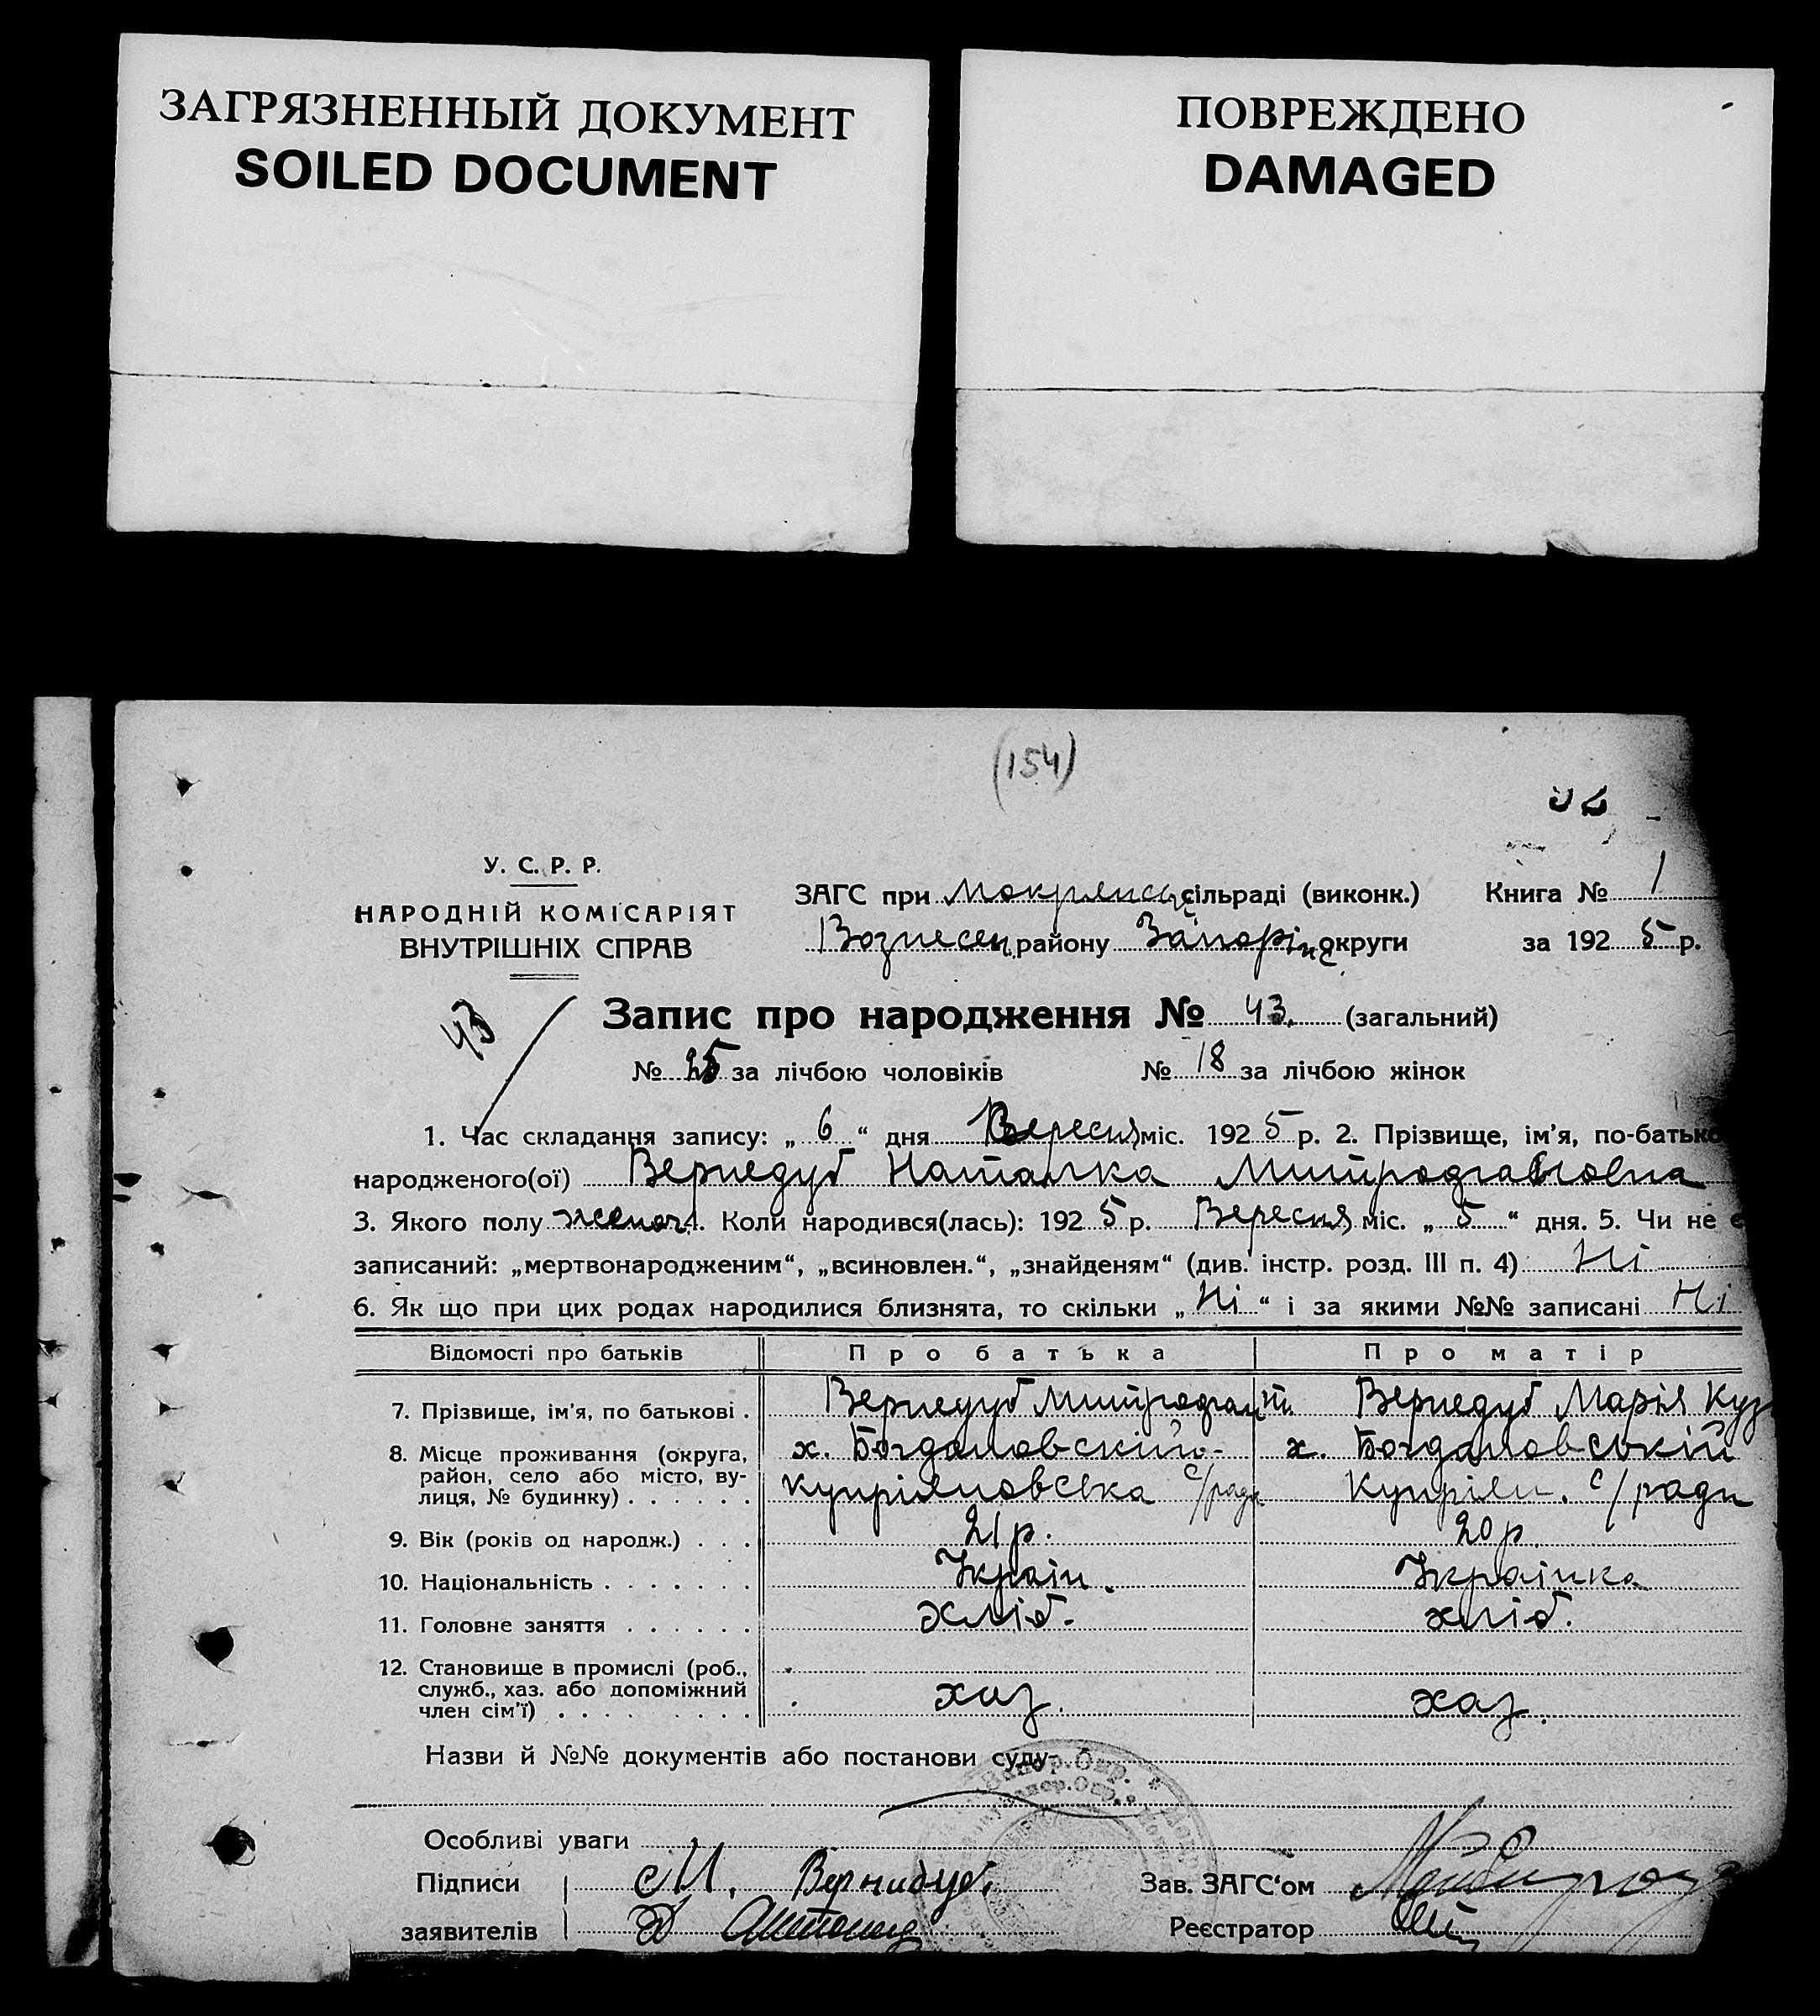 ЗАГРЯЗНЕННЫЙ ДОКУМЕНТ
SOILED DOCUMENT
ПОВРЕЖДЕНО
DAMAGED
(154)
У. С. Р. Р.
НАРОДНІЙ КОМІСАРІЯТ
ВНУТРІШНІХ СПРАВ
ЗАГС при Мокрянськ сільраді (виконк.) Книга № 1
Вознесен. району Запоріж округи за 192 5 р.
43
Запис про народження № 43. (загальний)
№ 25 за лічбою чоловіків № 18 за лічбою жінок
1. Час складання запису: „ 6 “ дня Вересня міс. 192 5 р. 2. Прізвище, ім’я, по-батько
народженого(ої) Вернедуб Наталка Митрофановна
3. Якого полу женоч. 4. Коли народився(лась): 192 5 р. Вересня міс. „ 5 “ дня. 5. Чи не є
записаний: „мертвонародженим“, „всиновлен.“, „знайденям“ (див. інстр. розд. III п. 4) Ні
6. Як що при цих родах народилися близнята, то скільки „ Ні “ і за якими №№ записані Ні
Відомості про батьків Про батька Про матір
7. Прізвище, ім’я, по батькові . Вернедуб Митрофан Вернедуб Марія Куз
8. Місце проживання (округа, х. Богдановскій- х. Богдановській
район, село або місто, ву-
лиця, № будинку) . . . . . . Купріяновська с/рада Купріян. с/ради
9. Вік (років од народж.) . . . 21 р. 20 р.
10. Національність . . . . . . Україн. Українка
11. Головне заняття . . . . . . хліб. хліб.
12. Становище в промислі (роб.,
служб., хаз. або допоміжний хаз. хаз.
член сім’ї) . . . . . . . . .
Назви й №№ документів або постанови суду
Особливі уваги
Підписи М. Вернидуб. Зав. ЗАГС‘ом
заявителів Реєстратор